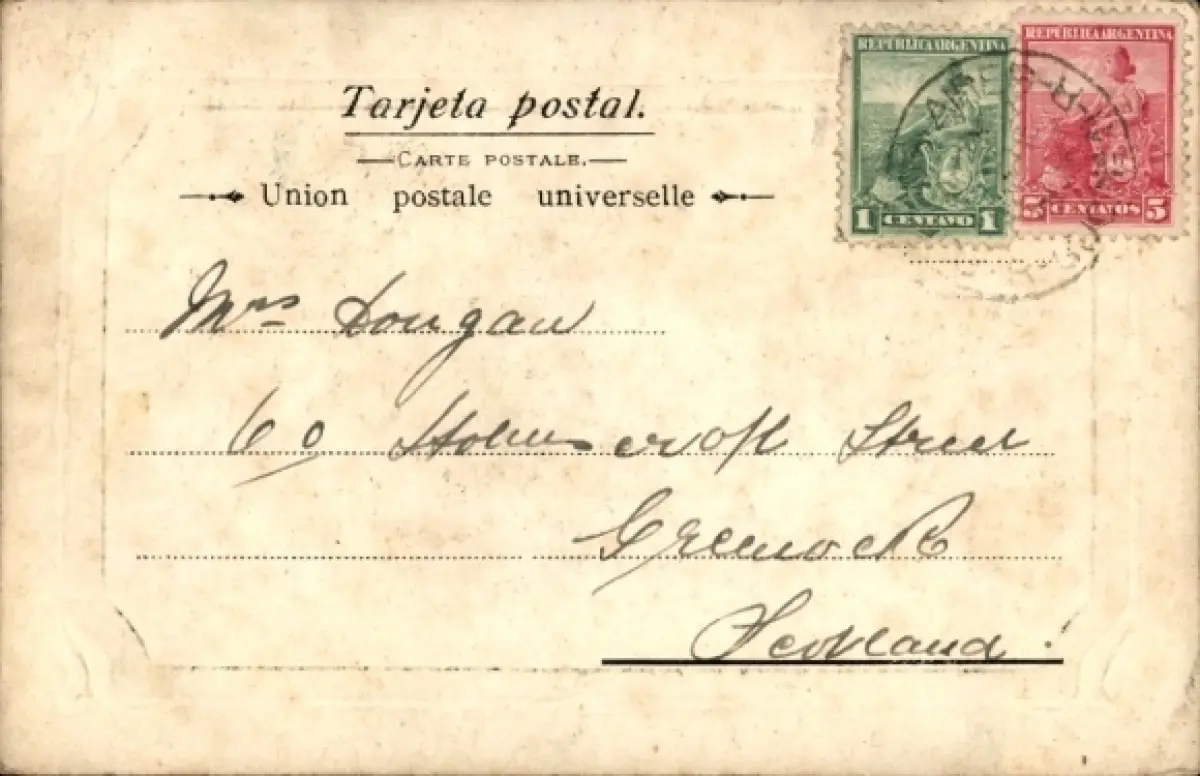 Tarjeta postal.
CARTE POSTALE.
Union postale universelle
REPUBLICA ARGENTINA
1 CENTAVO 1
REPUBLICA ARGENTINA
5 CENTAVOS 5
Mrs Dougan
60 Holmscroft Street
Greenock
Scotland